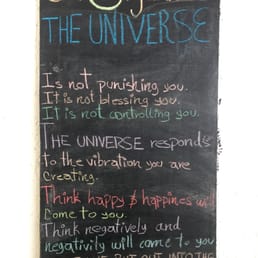 THE UNIVERSE
Is not punishing you.
It is not blessing you.
It is not controlling you.
THE UNIVERSE responds
to the vibration you are
Creating.
Think happy & happines will
Come to you.
Think negatively and
negativity will come to you
PUT OUT INTO THE